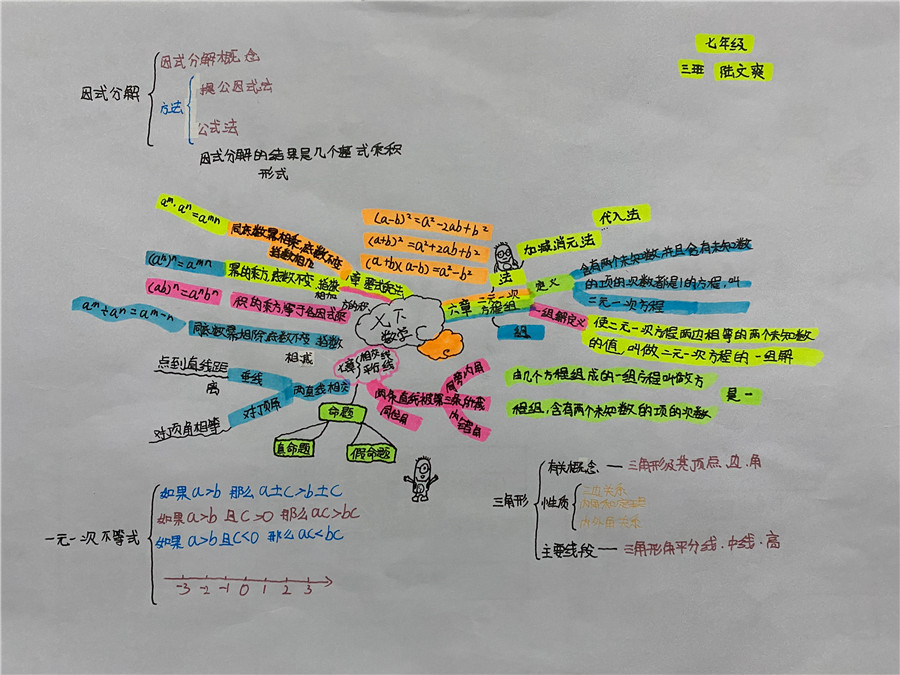 七年级
三班 陆文爽
因式分解
因式分解概念
方法
提公因式法
公式法
因式分解的结果是几个整式乘积
形式
aᵐ·aⁿ=aᵐⁿ
同底数幂相乘,底数不变
指数相加
(aᵐ)ⁿ=aᵐⁿ
幂的乘方,底数不变
(ab)ⁿ=aⁿbⁿ
积的乘方等于各因式乘
方的积
aᵐ÷aⁿ=aᵐ⁻ⁿ
同底数幂相除,底数不变 指数
相减
(a-b)²=a²-2ab+b²
(a+b)²=a²+2ab+b²
(a+b)(a-b)=a²-b²
七下
数学
六章 二元一次
方程组
法
代入法
加减消元法
定义
含有两个未知数,并且含有未知数
的项的次数都是1的方程,叫
二元一次方程
一组解定义
使二元一次方程两边相等的两个未知数
的值,叫做二元一次方程的一组解
组
由几个方程组成的一组方程叫做方
程组,含有两个未知数的项的次数
是一
相交线
平行线
两直线相交
垂线
点到直线距
离
对顶角
对顶角相等
两条直线被第三条所截
同旁内角
同位角
内错角
命题
真命题
假命题
一元一次不等式
如果a>b 那么a±c>b±c
如果a>b 且c>0 那么ac>bc
如果a>b且c<0 那么ac<bc
-3 -2 -1 0 1 2 3
三角形
有关概念 — 三角形及其顶点、边、角
性质
三边关系
内外角关系
主要线段 — 三角形角平分线·中线·高